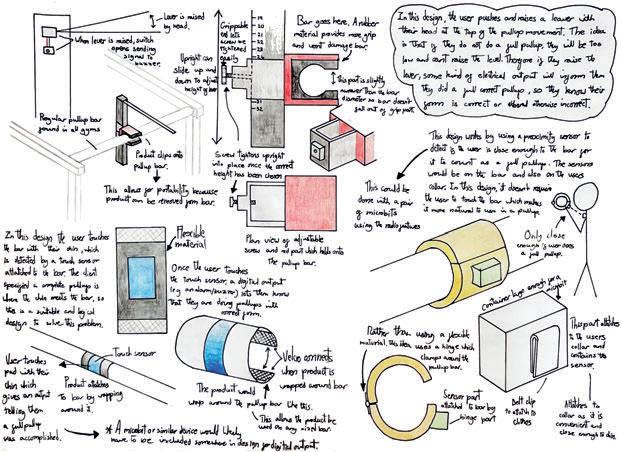 Lever is raised
by head.
When lever is raised, switch
opens sending
signal to
buzzer.
Regular pullup bar
found in all gyms
Product clips onto
pullup bar.
This allows for portability because
product can be removed from bar.
Grippable
end lets
screw be
tightened
easily
Upright can
slide up and
down to adjust
height of bar
Screw tightens upright
into place once the correct
height has been chosen
Bar goes here. A rubber
material provides more grip
and won't damage bar.
this part is slightly
narrower than the bar
diameter so bar doesn't
fall out of grip part.
Plan view of adjustable
screw and red part which holds onto
the pullup bar.
In this design, the user pushes and raises a lever with
their head at the top of the pullup movement. The idea
is that if they do not do a full pullup, they will be too
low and can't raise the level. Therefore if they raise the
lever, some kind of electrical output will inform them
they did a full correct pullup, so they know their
form is correct or otherwise incorrect.
This design works by using a proximity sensor to
detect if the user is close enough to the bar for
it to count as a full pullup. The sensors
would be on the bar and also on the users
collar. In this design, it doesn't require
the user to touch the bar which makes
it more natural to use in a pullup.
This could be
done with a pair
of microbits
using the radio features
Only close
enough if user does
a full pullup.
In this design the user touches
the bar with their chin, which
is detected by a touch sensor
attached to the bar. The client
specified a complete pullup is
when the chin meets the bar, so
this is a suitable and logical
design to solve this problem.
Flexible
material
Once the user touches
the touch sensor, a digital output
(e.g. an alarm/buzzer) lets them know
that they are doing pullups with
correct form.
Touch sensor
User touches
pad with their
chin which
gives an output
telling them
a full pullup
was accomplished.
Product attaches
to bar by wrapping
around it.
Velcro connects
when product is
wrapped around bar
The product would
wrap around the pullup bar like this.
This allows the product be
used on any sized bar.
* A microbit or similar device would likely
have to be included somewhere in design for digital output.
Rather than using a flexible
material, this idea uses a hinge which
clamps around the
pullup bar.
Sensor part
attached to bar by
hinge part
Container large enough for a
microbit
Belt clip
to attach to
clothes
This part attaches
to the users
collar and
contains the
sensor.
Attaches to
collar as it is
convenient and
close enough to chin.